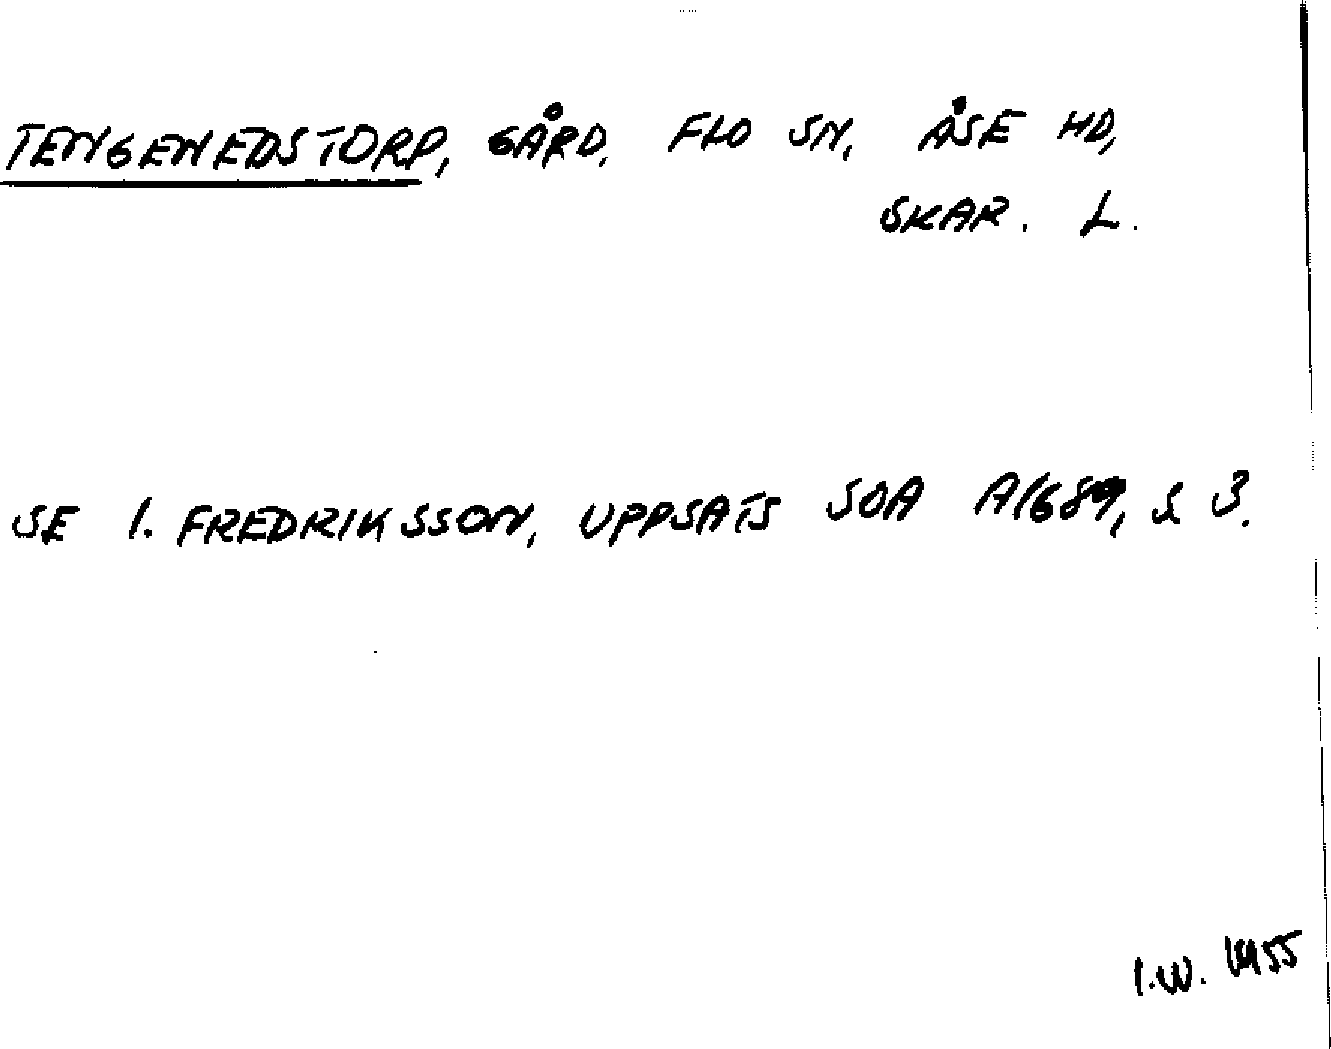 TENGENEDSTORP, GÅRD, FLO SN, ÅSE HD,
SKAR. L.
SE I. FREDRIKSSON, UPPSATS SOA A1689, S 3.
I.W. 1955